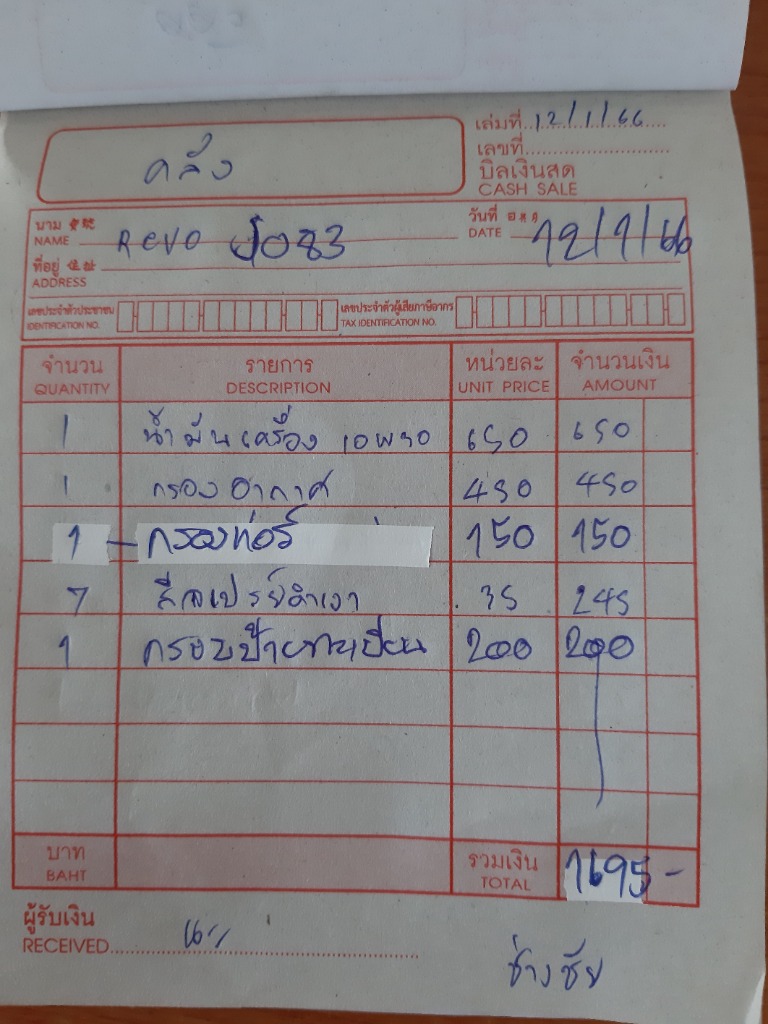 เล่มที่ 12/1/66
คลัง
เลขที่
บิลเงินสด
CASH SALE
นาม NAME Revo 1083
วันที่ DATE 12/1/66
ที่อยู่ ADDRESS
เลขประจำตัวประชาชน IDENTIFICATION NO. เลขประจำตัวผู้เสียภาษีอากร TAX IDENTIFICATION NO.
จำนวน รายการ หน่วยละ จำนวนเงิน
QUANTITY DESCRIPTION UNIT PRICE AMOUNT
1 น้ำมันเครื่อง 10W30 650 650
1 กรองอากาศ 450 450
1 - กรองท่อร์ 150 150
7 สีสเปรย์ดำเงา 35 245
1 กรอบป้ายทะเบียน 200 200
บาท รวมเงิน 1695 -
BAHT TOTAL
ผู้รับเงิน
RECEIVED
ช่างชัย